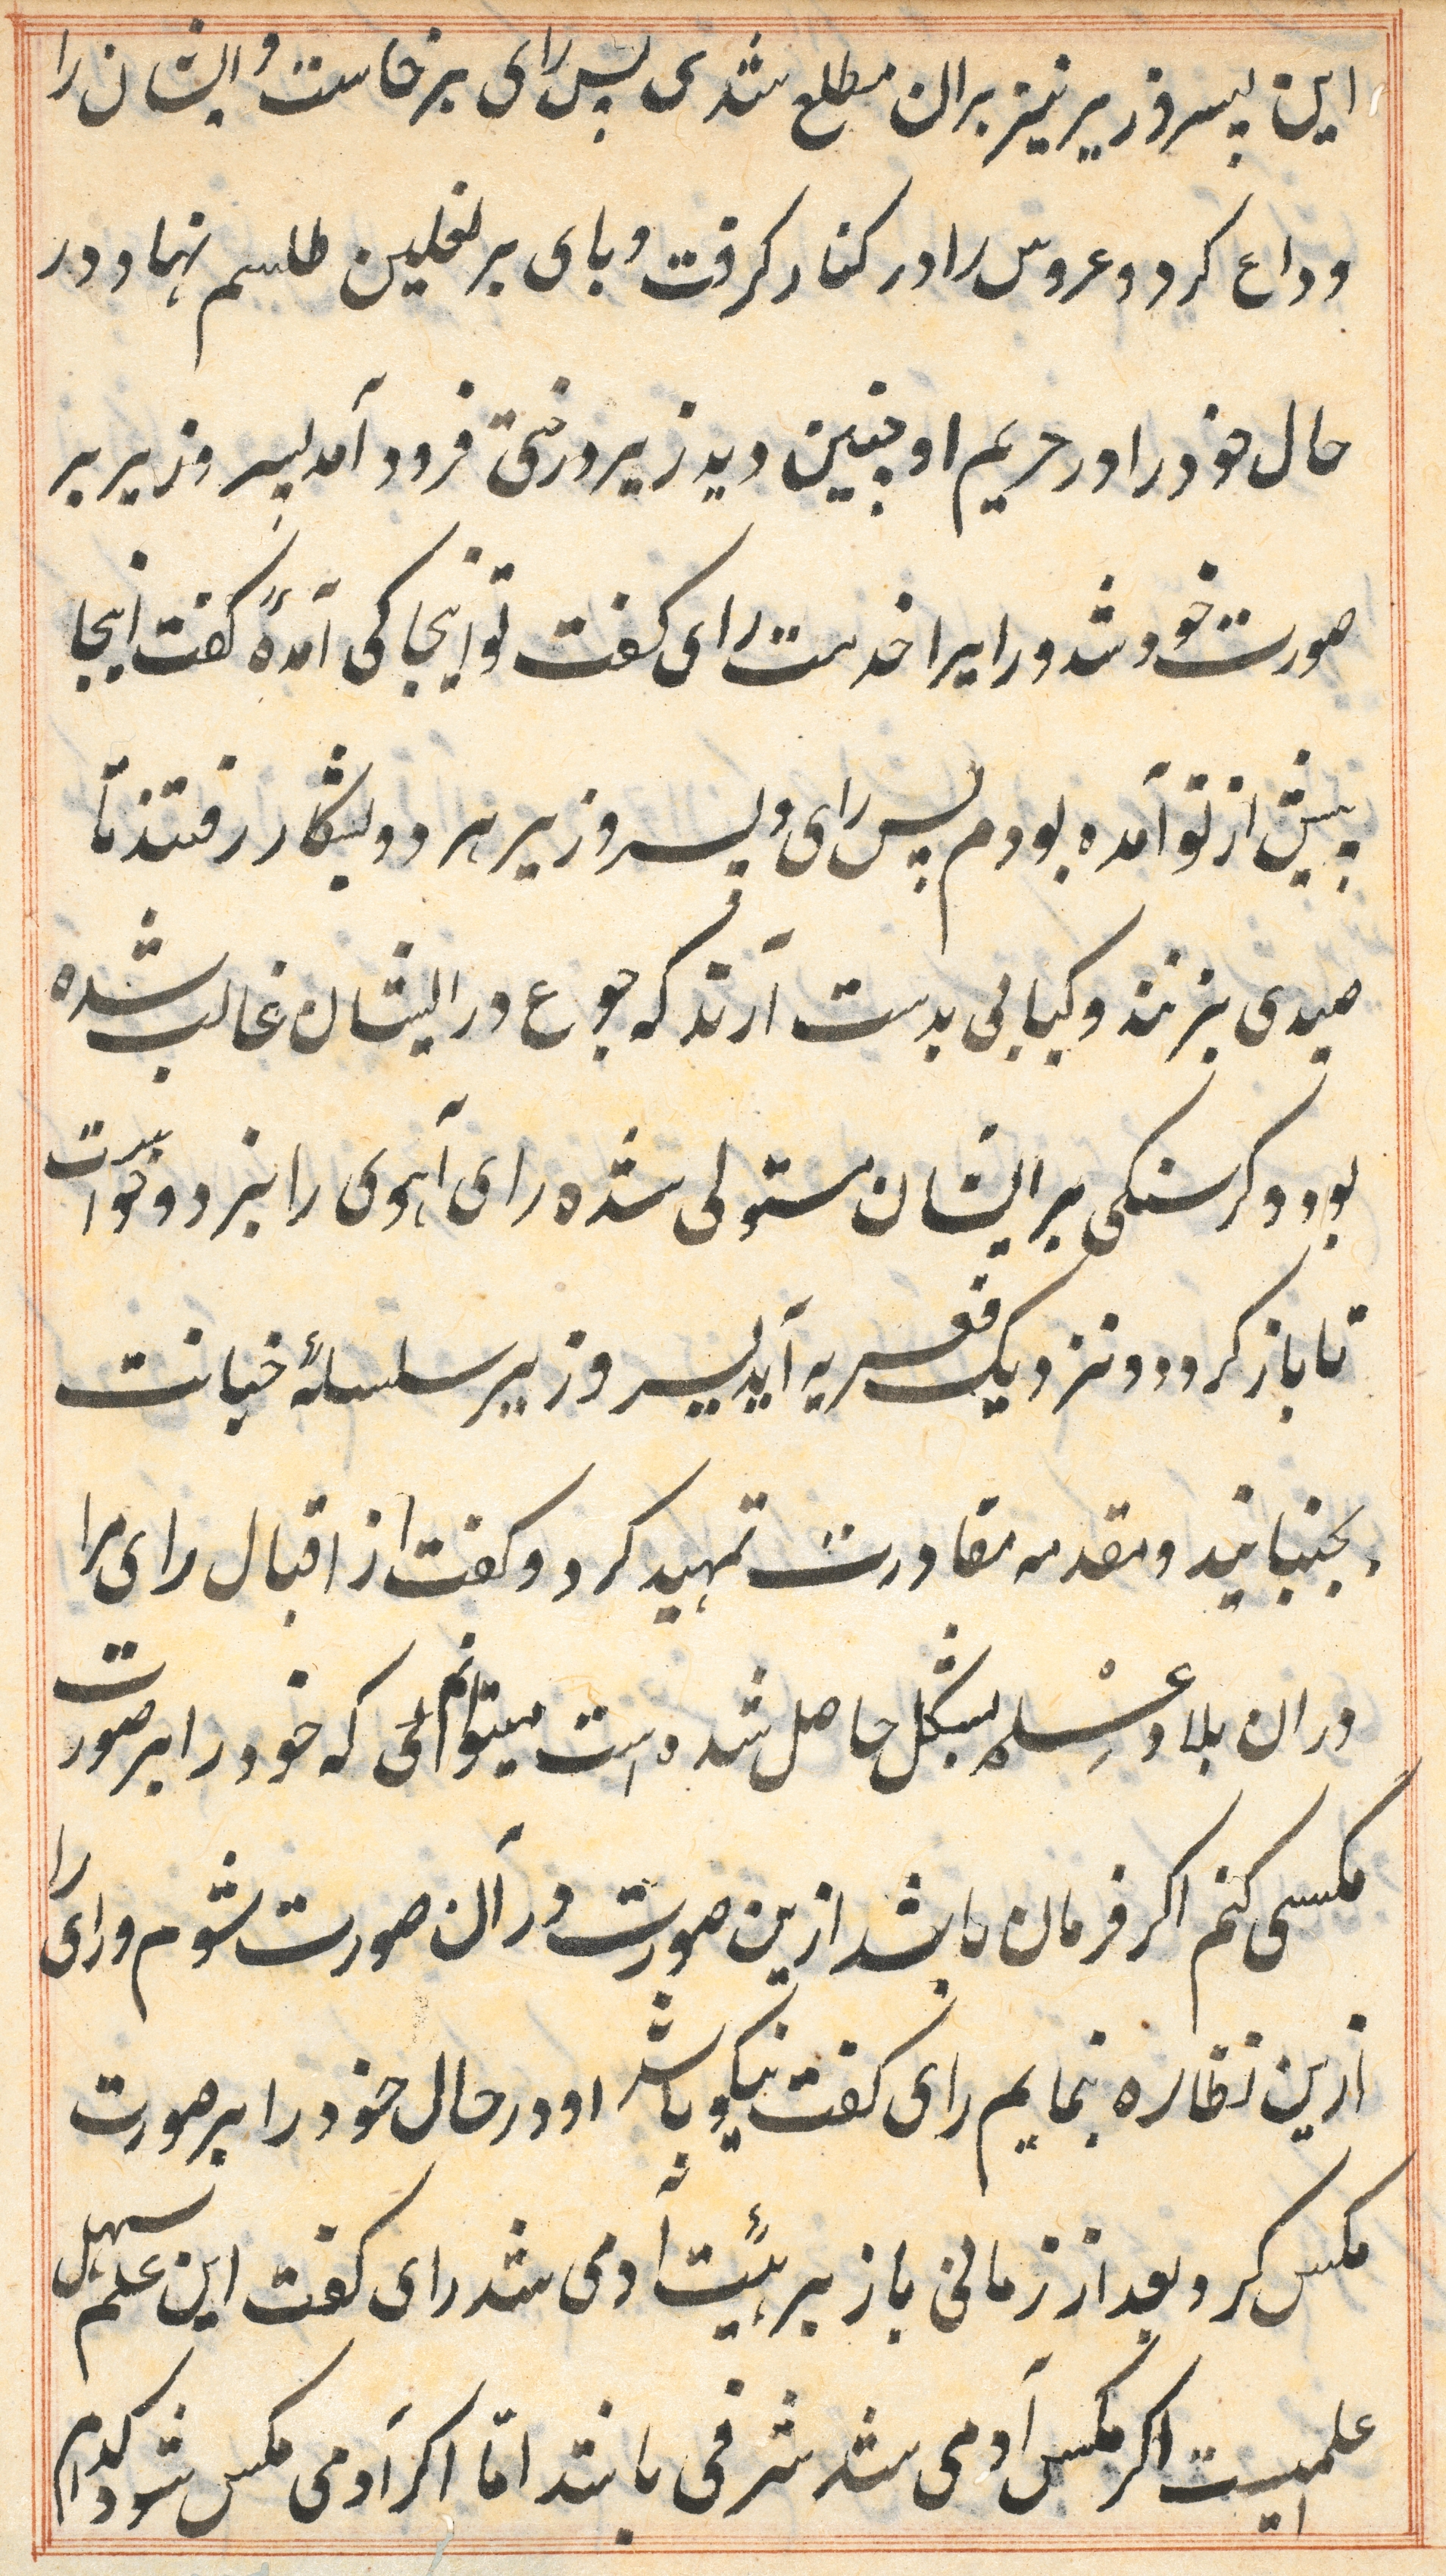 این پسر وزیر نیز بران مطلع شدی پس رای برخاست و ایشان را
وداع کرد و عروس را در کنار کرفت و پای بر نعلین طلسم نهاد و در
حال خود را در حریم او چنین دید زیر درختی فرود آمد پسر وزیر بر
صورت خود شد و رایرا خدمت رای کفت تو اینجا کی آمدهٔ کفت اینجا
پیش از تو آمده بودم پس رای و پسر وزیر هر دو بشکار رفتند تا
صیدی بزنند و کبابی بدست آرند که جوع در ایشان غالب شده
بود و کرسنکی بر ایشان مستولی شده رای آهوی را بزد و خواست
تا باز کردد و نزدیک آید پسر وزیر سلسلهٔ خیانت
بجنبانید و مقدمه تمهید کرد و کفت از اقبال رای مرا
دران بلاد عِلْم بشکل حاصل شده است میتوانم که خود را بر صورت
مکسی کنم اکر فرمان باشد ازین صورت در آن صورت شوم و رای را
ازین نظاره نمایم رای کفت نیکو باشد او در حال خود را بر صورت
مکس کرد بعد از زمانی باز بر هیئت آدمی شد رای کفت این علم سهل
علمیست اکر مکس آدمی شد شرفی باشد امّا اکر آدمی مکس شود کدام